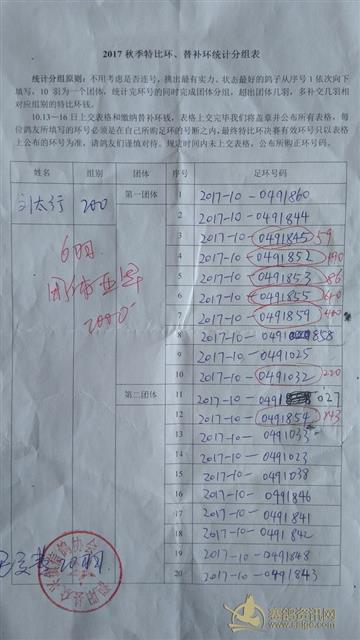 2017 秋季特比环、替补环统计分组表
统计分组原则：不用考虑是否连号，挑出最有实力、状态最好的鸽子从序号 1 依次向下
填写，10 羽为一个团体，统计完环号的同时完成团体分组，超出团体几羽，多补交几羽相
对应组别的特比环钱。
10.13—16 日上交表格和缴纳替补环钱，表格上交完毕我们将盖章并公布所有表格，每
位鸽友所填写的环号必须是在自己所购足环的号断之内，最终特比环决赛有效环号只以表格
上公布的环号为准，请鸽友们谨慎对待。规定时间内未上交表格，公布所购正环号码。
姓名 组别 团体 序号 足环号码
刘太行 200 第一团体 1 2017-10-0491860
2 2017-10-0491844
3 2017-10-0491845 59
4 2017-10-0491852 190
5 2017-10-0491853 86
6 2017-10-0491855 640
7 2017-10-0491859
8 2017-10-0491858
9 2017-10-0491025
10 2017-10-0491032 220
第二团体 11 2017-10-0491027
12 2017-10-0491854 143
13 2017-10-0491033
14 2017-10-0491023
15 2017-10-0491038
16 2017-10-0491846
17 2017-10-0491841
18 2017-10-0491842
19 2017-10-0491848
20 2017-10-0491843
6羽
团体亚军
2000
已交替20羽
赛鸽资讯网
www.chigeo.com